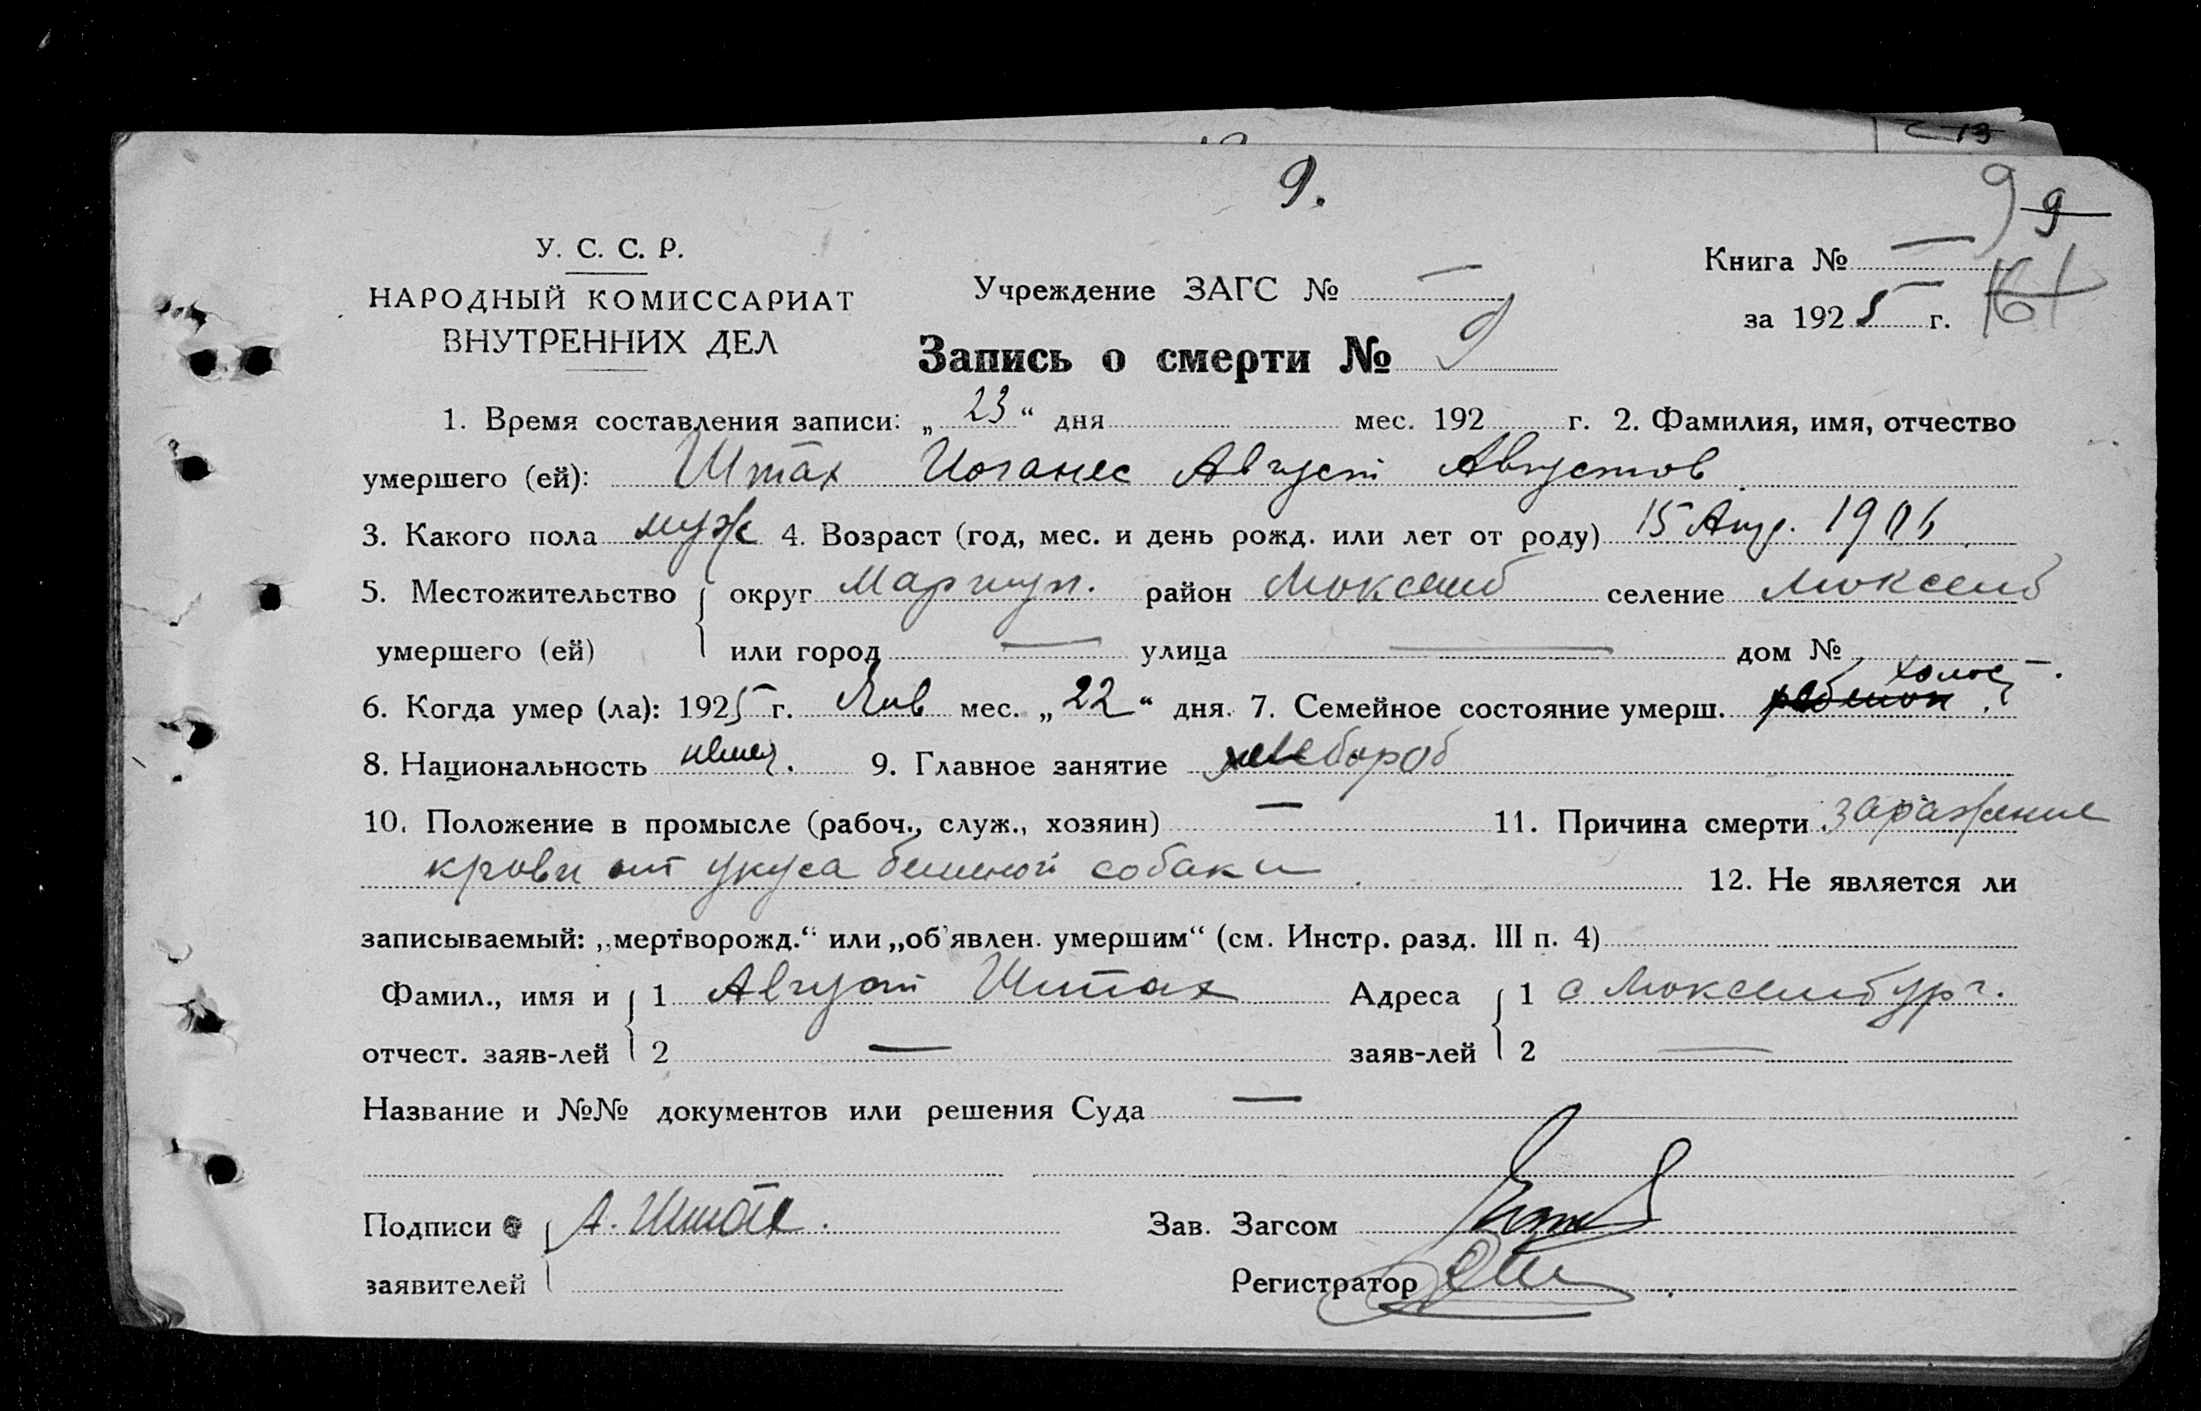 13
9.
9
9
У. С. С. Р.
НАРОДНЫЙ КОМИССАРИАТ
ВНУТРЕННИХ ДЕЛ
Учреждение ЗАГС № —
Книга № —
за 1925 г.
Запись о смерти № 9
1. Время составления записи: „23“ дня мес. 192 г. 2. Фамилия, имя, отчество
умершего (ей): Штах Иоганес Август Августов
3. Какого пола муж 4. Возраст (год, мес. и день рожд. или лет от роду) 15 Апр. 1906
5. Местожительство округ Мариуп. район Люксемб селение Люксемб
умершего (ей) или город — улица — дом № —.
6. Когда умер (ла): 1925 г. Янв мес. „22“ дня. 7. Семейное состояние умерш. ребенок холост
8. Национальность немец. 9. Главное занятие хлебороб
10. Положение в промысле (рабоч., служ., хозяин) — 11. Причина смерти заражение
крови от укуса бешеной собаки 12. Не является ли
записываемый: „мертворожд.“ или „об'явлен. умершим“ (см. Инстр. разд. III п. 4)
Фамил., имя и 1 Август Штах Адреса 1 с Люксембург.
отчест. заяв-лей 2 — заяв-лей 2 —
Название и №№ документов или решения Суда —
Подписи А. Штах. Зав. Загсом
заявителей Регистратор